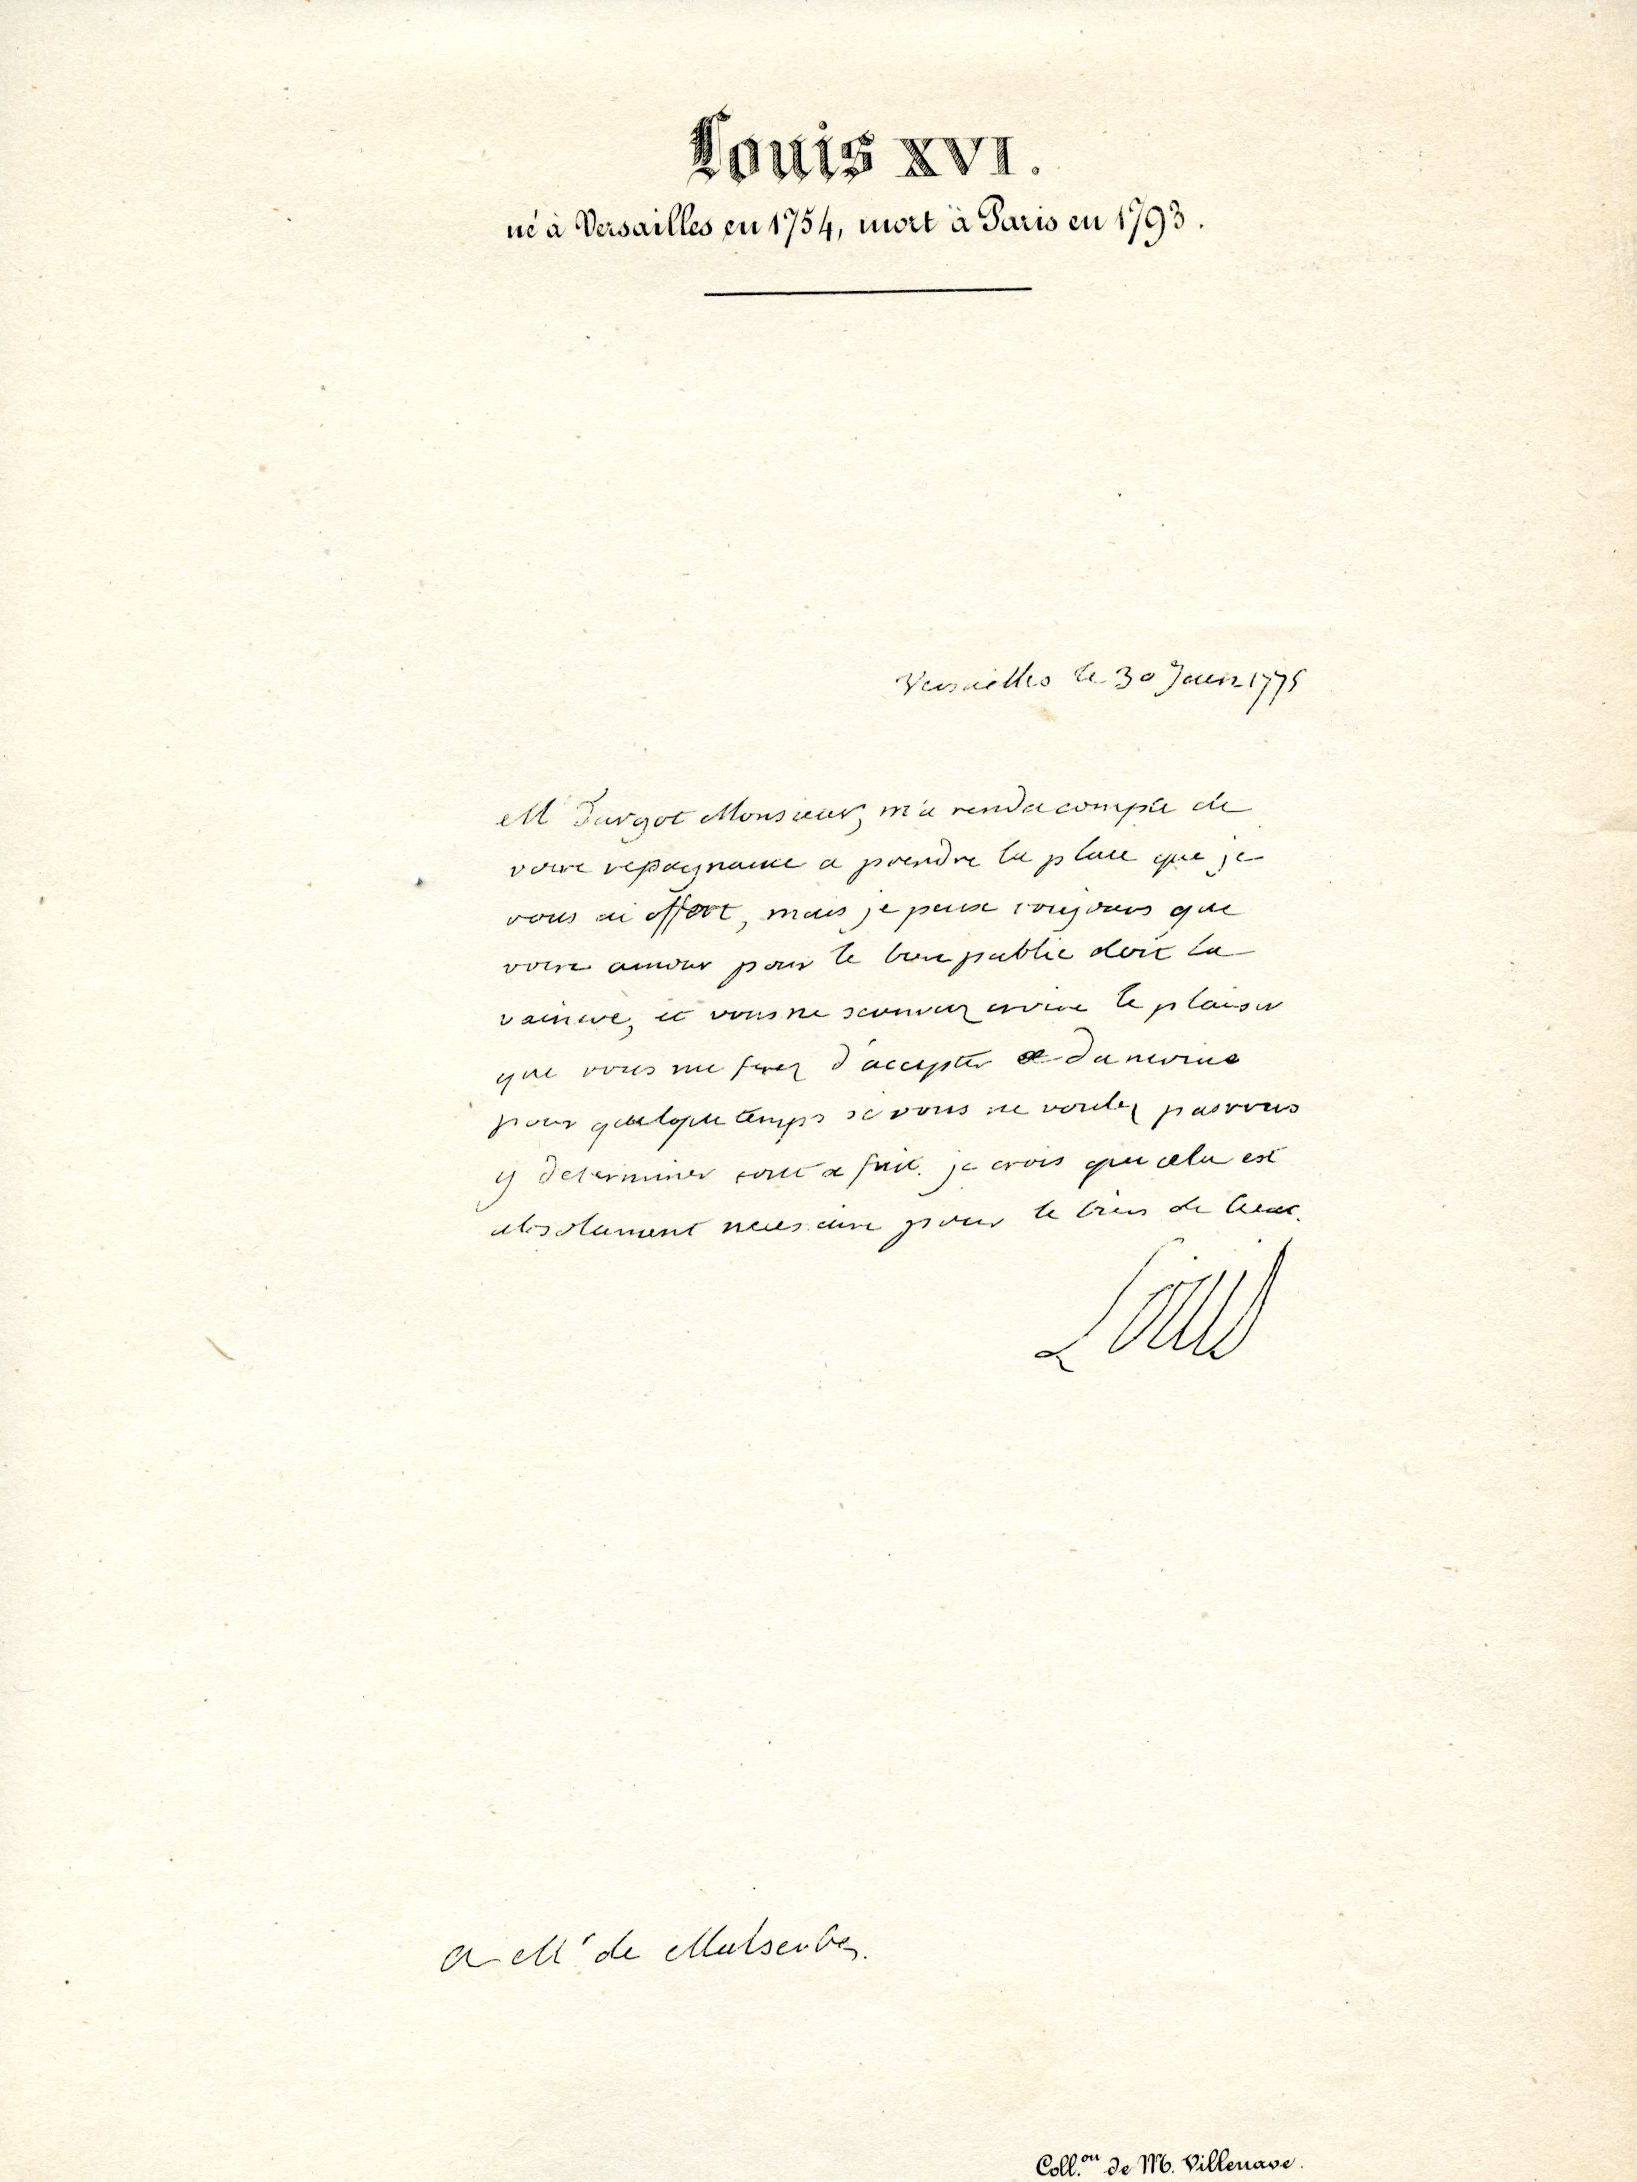 Louis XVI.
né à Versailles en 1754, mort à Paris en 1793.
Versailles le 30 Juin 1775
Mr Turgot Monsieur, m'a rendu compte de
votre repugnance a prendre la place que je
vous ai offert, mais je pense toujours que
votre amour pour le bien public doit la
vaincre, et vous ne scauriez croire le plaisir
que vous me ferez d'accepter du moins
pour quelque temps si vous ne voulez pas vous
y determiner tout a fait. je crois que cela est
absolument necessaire pour le bien de
Louis
a Mr de Malserbes.
Coll.on de M. Villenave.